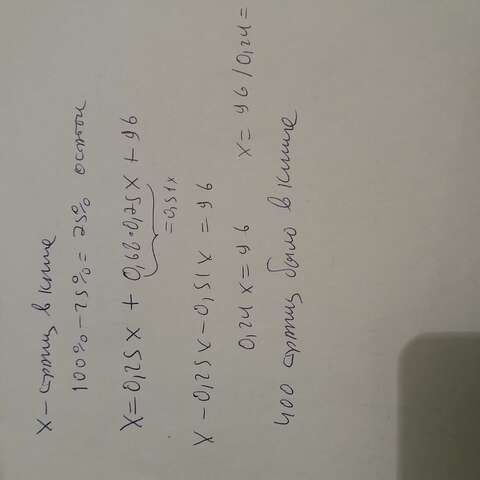 X - страниц в книге
100% - 25% = 75% остаток
X = 0,25X + 0,68·0,75X + 96
= 0,51x
X - 0,25X - 0,51X = 96
0,24X = 96 X = 96 / 0,24 =
400 страниц было в книге